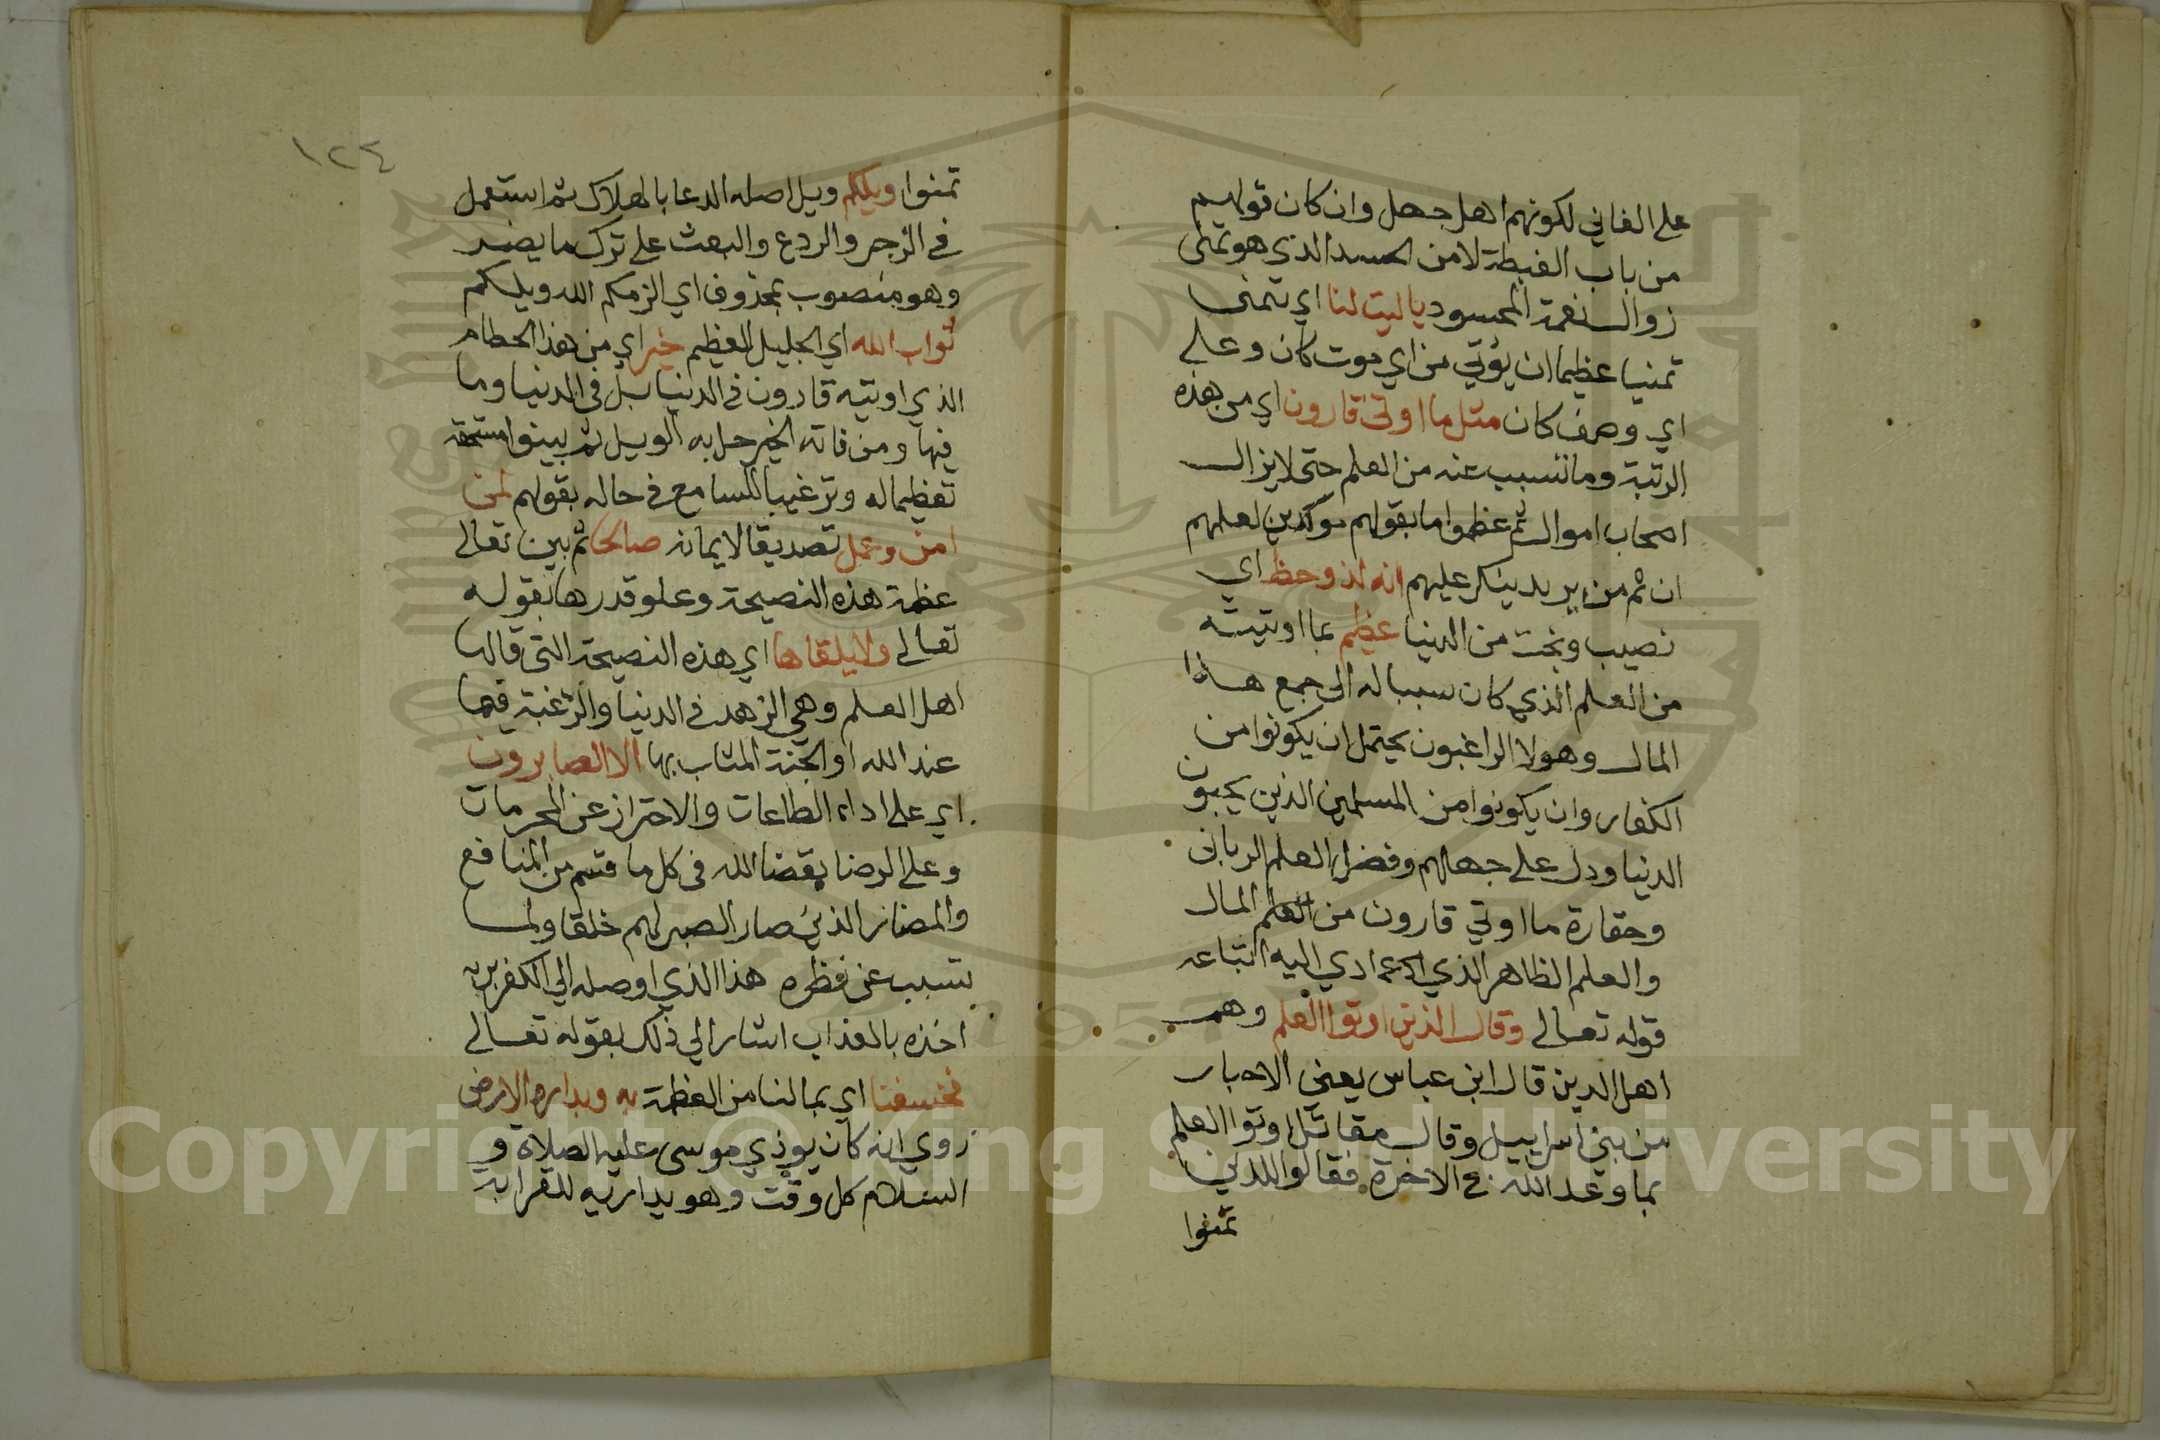 على الفاني لكونهم اهل جهل وان كان قولهم
من باب الغبطة لا من الحسد الذي هو تمنى
زوال نعمة المحسود يا ليت لنا اي تتمنى
تمنيا عظيما ان يؤتي من اي موت كان وعلى
اي وصف كان مثل ما اوتى قارون اي من هذه
الرتبة وما تسبب عنه من العلم حتى لا يزال
اصحاب اموال ثم عظموا ما بقولهم موكدين لعلمهم
ان ثم من يريد ينكر عليهم انه لذو حظ اي
نصيب وبخت من الدنيا عظيم بما اوتيته
من العلم الذي كان سببا له الى جمع هذا
المال وهولا الراغبون يحتمل ان يكونوا من
الكفار وان يكونوا من المسلمين الذين يحبون
الدنيا ودل على جهلهم وفضل العلم الربانى
وحقارة ما اوتي قارون من العلم المال
والعلم الظاهر الذي ادى اليه اتباعه
قوله تعالى وقال الذين اوتوا العلم وهم
اهل الدين قال ابن عباس يعني الاحبار
من بني اسراييل وقال مقاتل اوتوا العلم
بما وعد الله في الاخرة فقالوا للذين
تمنوا
١٢٤
تمنوا ويلكم ويل اصله الدعا بالهلاك ثم استعمل
في الزجر والردع والبعث على ترك ما يضر
وهو منصوب بمحذوف اي الزمكم الله ويلكم
ثواب الله اي الجليل العظيم خير اي من هذا الحطام
الذي اوتيه قارون في الدنيا بل في الدنيا وما
فيها ومن فاته الخير حل به الويل ثم بينوا مستحقه
تعظيما له وترغيبا للسامع في حاله بقولهم لمن
امن وعمل تصديقا لايمانه صالحا ثم بين تعالى
عظمة هذه النصيحة وعلو قدرها بقوله
تعالى ولا يلقاها اي هذه النصيحة التي قالها
اهل العلم وهي الزهد في الدنيا والرغبة فيما
عند الله او الجنة المثاب بها الا الصابرون
اي على اداء الطاعات والاحتراز عن المحرمات
وعلى الرضا بقضا الله في كل ما قسم من المنافع
والمضار الذين صار الصبر لهم خلقا ولما
تسبب عن نظره هذا الذي اوصله الي الكفر بربه
اخذه بالعذاب اشار الي ذلك بقوله تعالى
فخسفنا اي بما لنا من العظمة به وبداره الارض
روي انه كان يوذي موسى عليه الصلاة و
السلام كل وقت وهو يداريه للقرابة
Copyright © King Saud University
1957